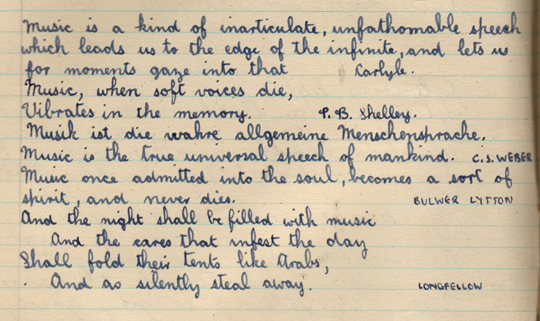 Music is a kind of inarticulate, unfathomable speech
which leads us to the edge of the infinite, and lets us
for moments gaze into that Carlyle.
Music, when soft voices die,
Vibrates in the memory. P. B. Shelley.
Musik ist die wahre allgemeine Menschensprache.
Music is the true universal speech of mankind. C.S. WEBER
Music once admitted into the soul, becomes a sort of
spirit, and never dies. BULWER LYTTON
And the night shall be filled with music
And the cares that infest the day
Shall fold their tents like Arabs,
And as silently steal away. LONGFELLOW